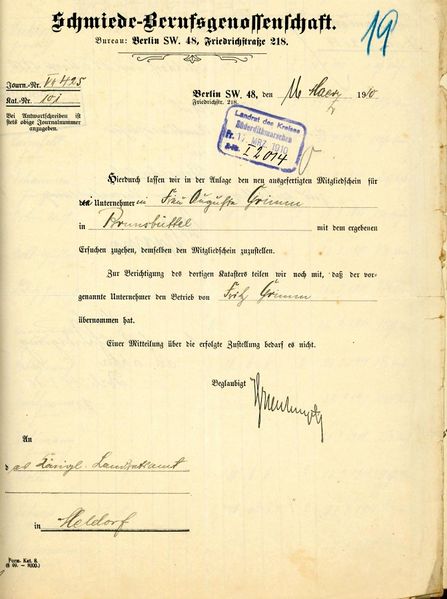 Schmiede-Berufsgenossenschaft.
19
Bureau: Berlin SW. 48, Friedrichstraße 218.
Journ.-Nr. VI 425
Kat.-Nr. 101
Bei Antwortschreiben ist
stets obige Journalnummer
anzugeben.
Berlin SW. 48, den 16 Maerz 1910
Friedrichstr. 218.
Landrat des Kreises
Süderdithmarschen
Pr. 17. MRZ. 1910
I 2014
Hierdurch lassen wir in der Anlage den neu ausgefertigten Mitgliedschein für
Unternehmerin Frau Auguste Grimm
in Brunsbüttel mit dem ergebenen
Ersuchen zugehen, demselben den Mitgliedschein zuzustellen.
Zur Berichtigung des dortigen Katasters teilen wir noch mit, daß der vor-
genannte Unternehmer den Betrieb von Fritz Grimm
übernommen hat.
Einer Mitteilung über die erfolgte Zustellung bedarf es nicht.
Beglaubigt
An
das Königl. Landratsamt
in Meldorf
Form. Kat. 8.